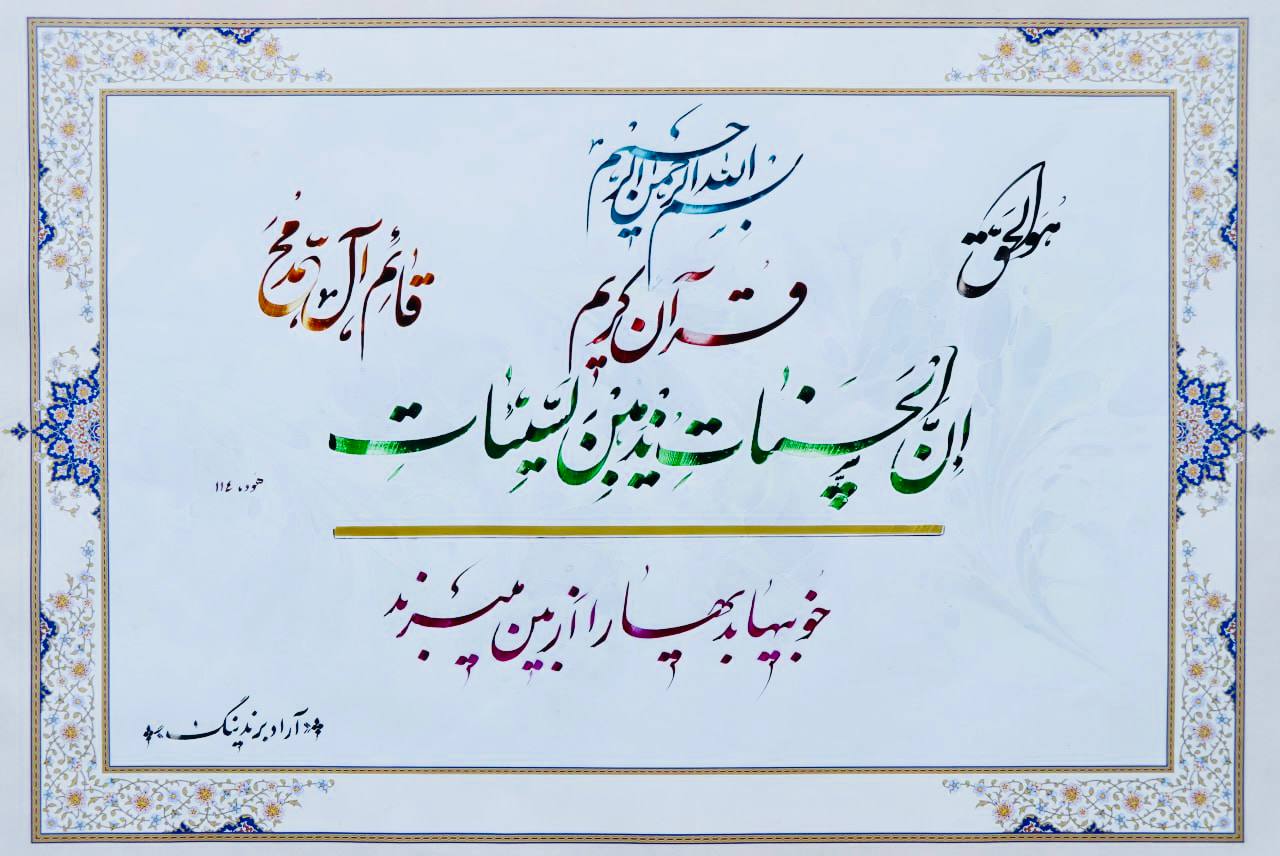 بسم الله الرحمن الرحیم
هو الحق
قائم آل محمد
قرآن کریم
اِنَّ الْحَسَنَاتِ يُذْهِبْنَ السَّيِّئَاتِ
هود، ۱۱٤
خوبیها بدیها را از بین میبرند
آراد برندینگ